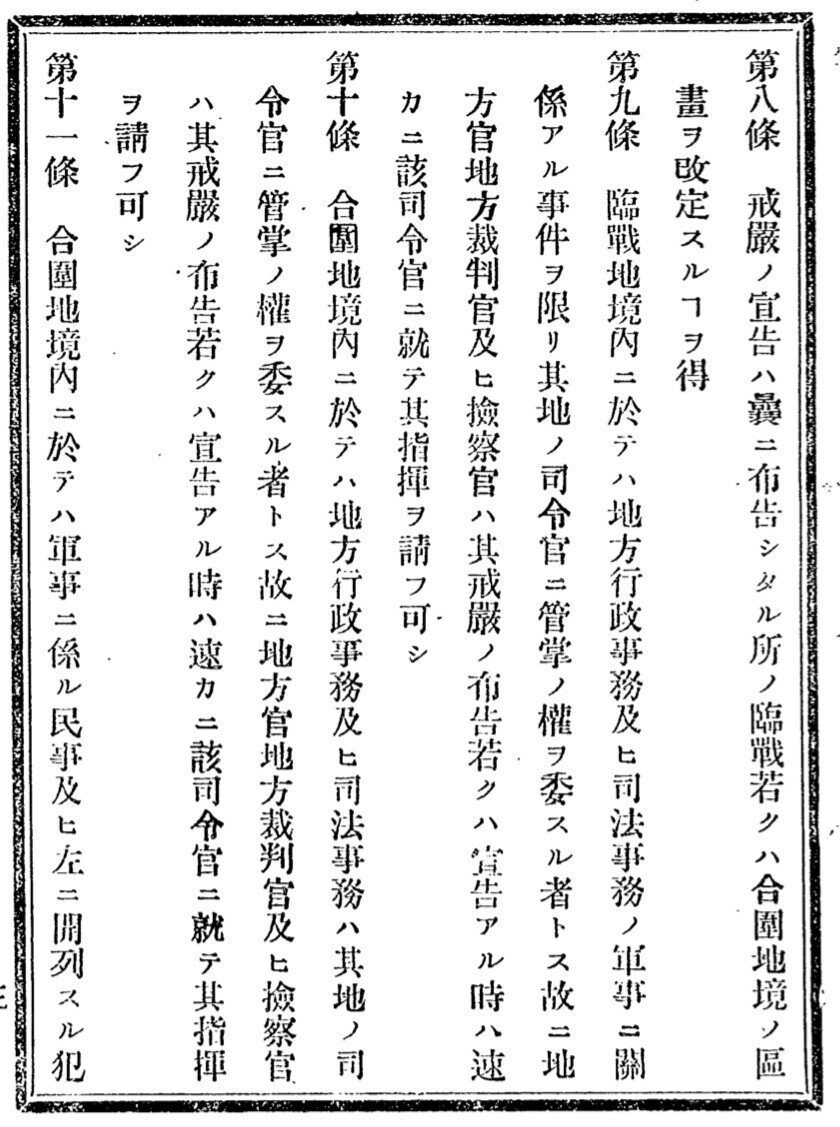 第八條　戒嚴ノ宣告ハ曩ニ布告シタル所ノ臨戰若クハ合圍地境ノ區
畫ヲ改定スルヿヲ得
第九條　臨戰地境內ニ於テハ地方行政事務及ヒ司法事務ノ軍事ニ關
係アル事件ヲ限リ其地ノ司令官ニ管掌ノ權ヲ委スル者トス故ニ地
方官地方裁判官及ヒ撿察官ハ其戒嚴ノ布告若クハ宣告アル時ハ速
カニ該司令官ニ就テ其指揮ヲ請フ可シ
第十條　合圍地境內ニ於テハ地方行政事務及ヒ司法事務ハ其地ノ司
令官ニ管掌ノ權ヲ委スル者トス故ニ地方官地方裁判官及ヒ撿察官
ハ其戒嚴ノ布告若クハ宣告アル時ハ速カニ該司令官ニ就テ其指揮
ヲ請フ可シ
第十一條　合圍地境內ニ於テハ軍事ニ係ル民事及ヒ左ニ開列スル犯